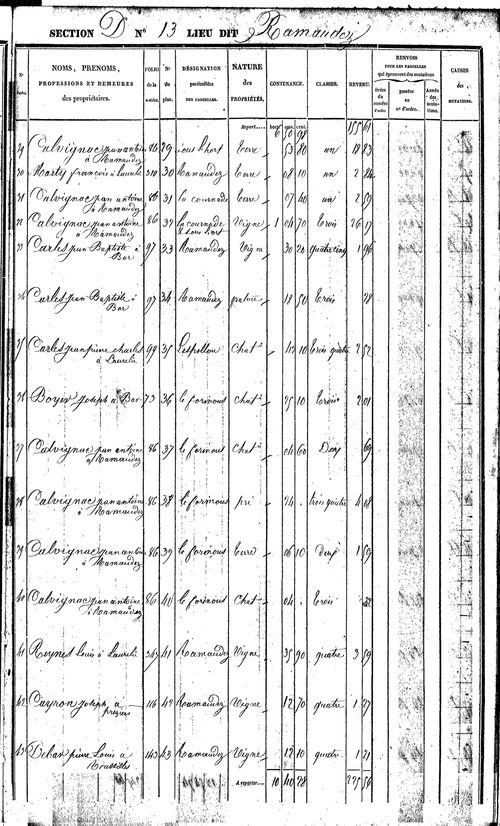 SECTION D N° 13 LIEU DIT Ramaudez
N° d'ordre.
NOMS, PRENOMS,
PROFESSIONS ET DEMEURES
des propriétaires.
FOLIO
de la
matrice.
N°
du
plan.
DÉSIGNATION
particulière
DES PARCELLES.
NATURE
des
PROPRIÉTÉS.
CONTENANCE.
CLASSES.
REVENU.
RENVOIS
POUR LES PARCELLES
qui éprouvent des mutations
tirées
du
numéro
d'ordre
passées
au
n° d'ordre.
Année
des
muta-
tions.
CAUSES
des
MUTATIONS.
Report..... 6 50 98 155 61
29 Calvignac jean antoine à Ramaudez 86 29 sous l'hort terre 53 80 un 18 83
30 Marty françois à Laurelie 210 30 Ramaudez terre 08 10 un 2 84
31 Calvignac jean antoine à Ramaudez 86 31 la cournade terre 07 40 un 2 59
32 Calvignac jean antoine à Ramaudez 86 32 la cournade & sous l'ort Vigne 1 04 70 trois 26 17
33 Carles jean Baptiste à Bar 97 33 Ramaudez Vigne 30 20 quatre cinq 1 96
34 Carles jean Baptiste à Bar 97 34 Ramaudez pature 18 50 trois 28
35 Carles jean pierre charles à Laurelie 99 35 Chat 42 10 trois quatre 2 52
36 Boyer Joseph à Bar 73 36 le forinous Chat 25 10 trois 2 01
37 Calvignac jean antoine à Ramaudez 86 37 le forinous Chat 04 60 Deux 69
38 Calvignac jean antoine à Ramaudez 86 38 le forinous pré 24 . trois quatre 4 08
39 Calvignac jean antoine à Ramaudez 86 39 le forinous terre 06 10 Deux 1 59
40 Calvignac jean antoine à Ramaudez 86 40 le forinous Chat 04 . trois 32
41 Reynes Louis à Laurelie 247 41 Ramaudez Vigne 35 90 quatre 3 59
42 Cayron Joseph à 116 42 Ramaudez Vigne 12 70 quatre 1 27
43 Debar pierre Louis à 143 43 Ramaudez Vigne 12 10 quatre 1 21
A reporter.... 10 40 28 225 56